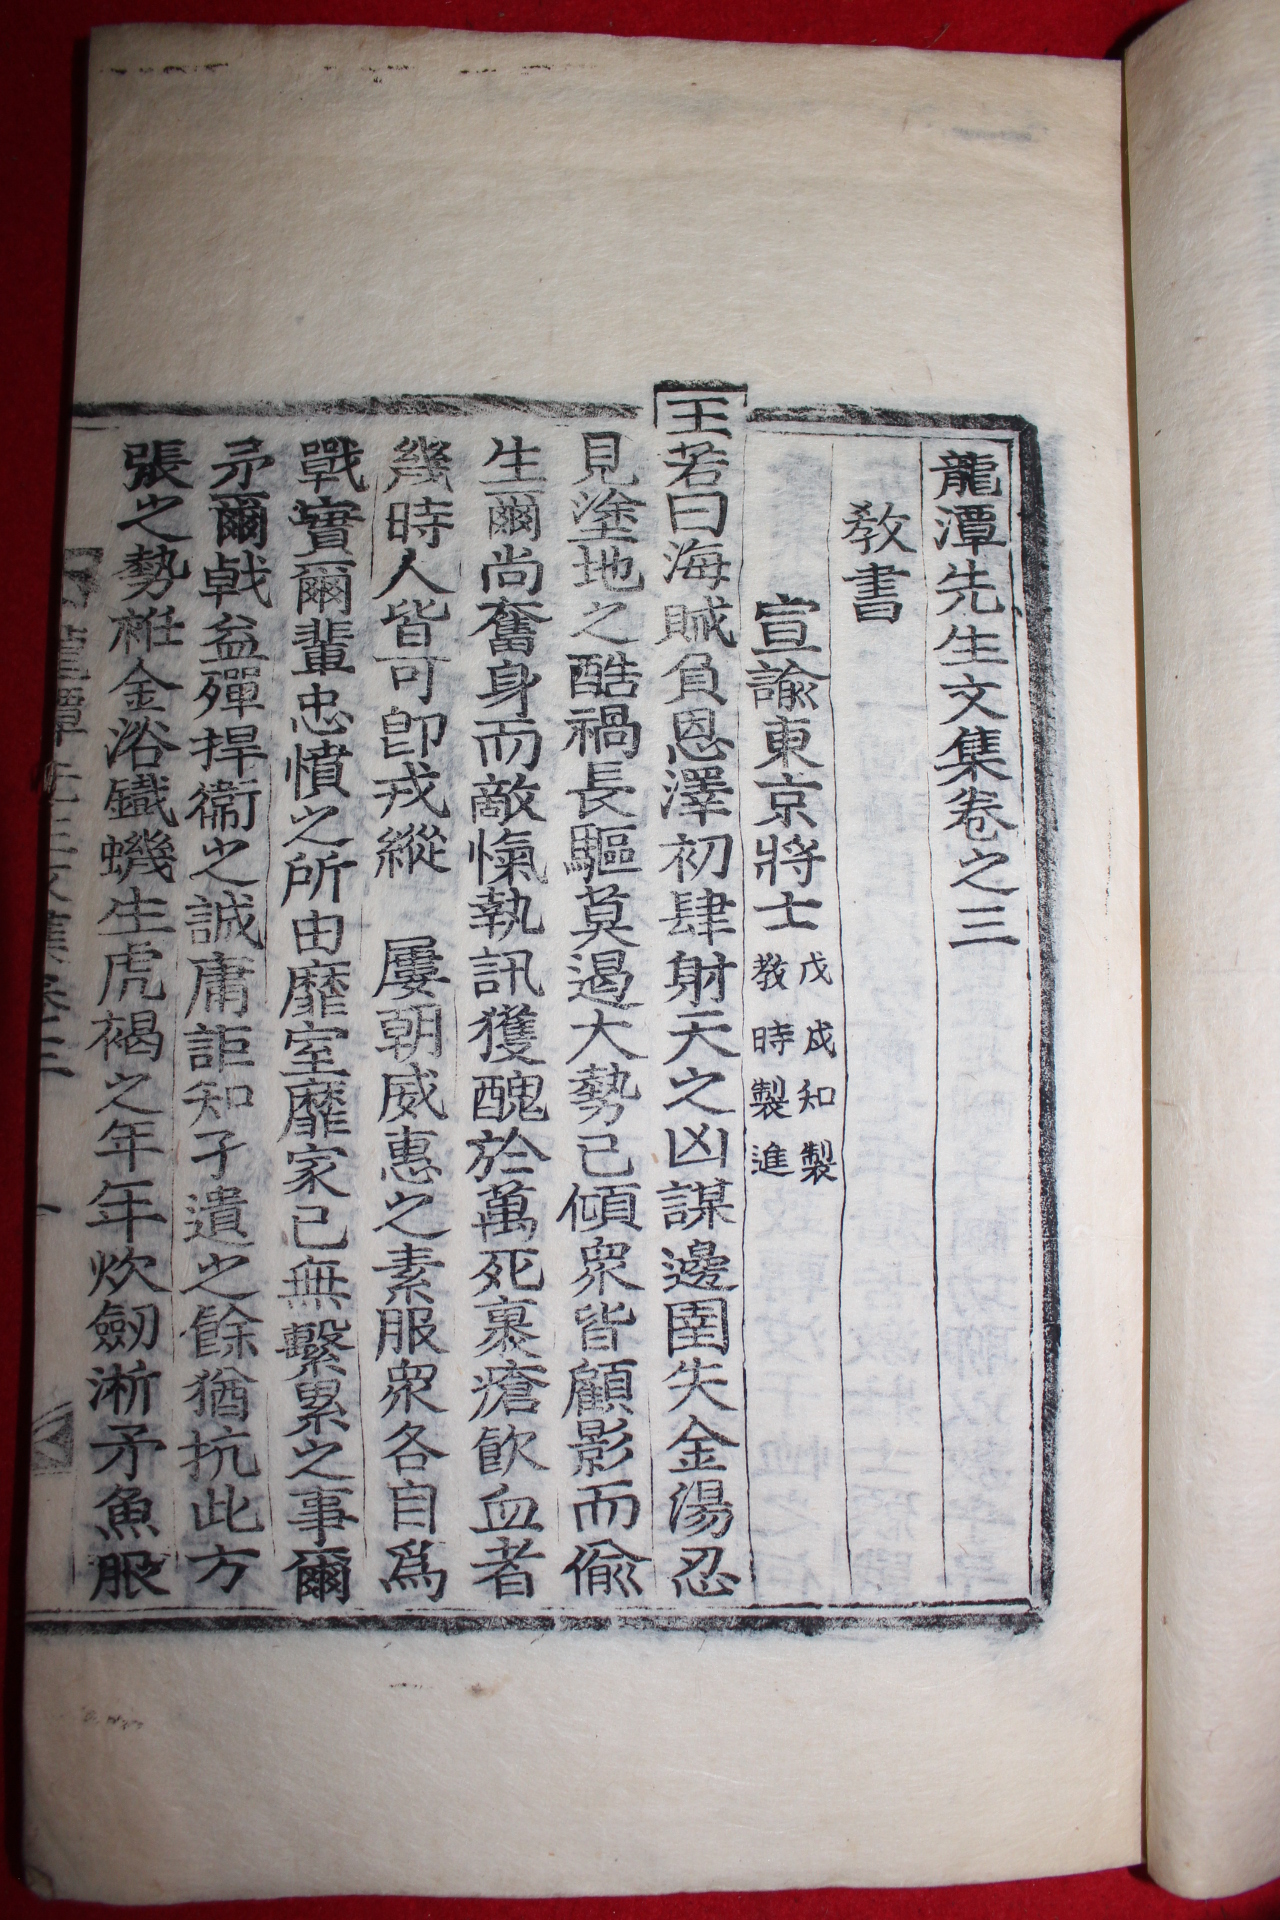 龍潭先生文集卷之三
教書
宣諭東京將士 戊戌知製
教時製進
王若曰海賊負恩澤初肆射天之凶謀邊圉失金湯忍
見塗地之酷禍長驅莫遏大勢已傾衆皆顧影而偸
生爾尚奮身而敵愾執訊獲醜於萬死裹瘡飮血者
幾時人皆可卽戎縱 屢朝威惠之素服衆各自爲
戰實爾輩忠憤之所由靡室靡家已無繫累之事爾
矛爾戟益殫捍衛之誠庸詎知孑遺之餘猶抗此方
張之勢袵金浴鐵蟣生虎褐之年年炊劒淅矛魚服
龍潭先生文集卷三